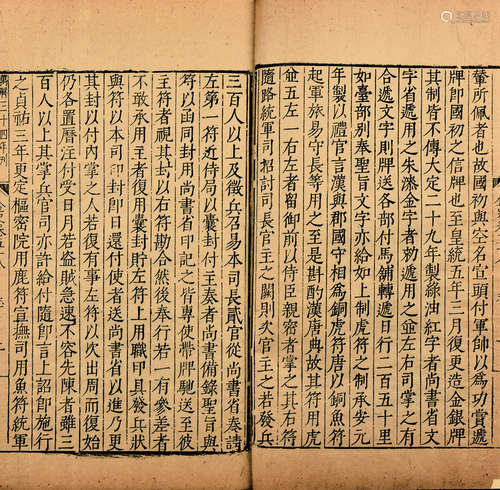 所佩者也故國初以空名宣頭付軍帥以爲功賞遞
牌即國初之信牌也至皇統五年三月復更造金銀牌
其制皆不傳大定二十九年製綠油紅字者尚書省文
字省遞用之朱漆金字者勅遞用之並左右司掌之有
合遞文字則牌送各部付馬鋪轉遞日行二百五十里
如臺部別奉聖旨文字亦給如上制虎符之制承安元
年製以禮官言漢與郡國守相爲銅虎符唐以銅魚符
起軍旅易守長等用之至是斟酌漢唐典故其符用虎
並五左一右左者留御前以侍臣親密者掌之其右符
隨路統軍司招討司長官主之闕則次官主之若發兵
三百人以上及徵兵召易本司長貳官從尚書省奏請
左第一符近侍局以囊封付主奏者尚書備錄聖旨與
符以函同封用尚書省印記之皆專使帶牌馳送至彼
主符者視其封以右符勘合然後奉行若一有參差者
不敢承用主者復用囊封貯左符上用職印具發兵狀
與符以本司印封即日還付使者送尚書省以進乃更
其封以付內掌之人若復有事左符以次出周而復始
仍各置曆注付受日月若盜賊急速不容先陳者雖三
百人以上其掌兵官司亦許給付隨即言上詔即施行
之貞祐三年更定樞密院用鹿符宣撫司用魚符統軍